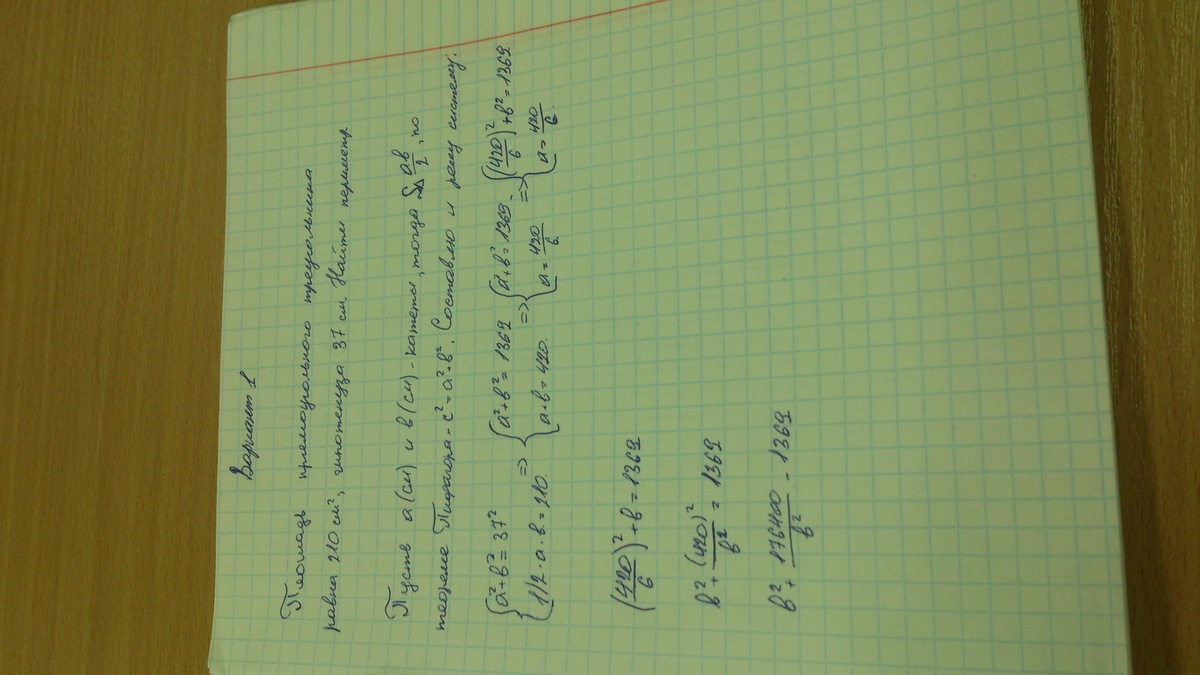 Вариант 1
Площадь прямоугольного треугольника
равна 210 см², гипотенуза 37 см. Найти периметр
Пусть а(см) и в(см) - катеты, тогда S△ aв/2, по
теореме Пифагора - c² = a² + в². Составлю и решу систему:
{a² + в² = 37² {1/2 · a · в = 210 => {a² + в² = 1369 {a · в = 420. => {a² + в² = 1369 {a = 420/в => {(420/в)² + в² = 1369 {a = 420/в.
(420/в)² + в = 1369
в² + (420)²/в² = 1369
в² + 176400/в² - 1369